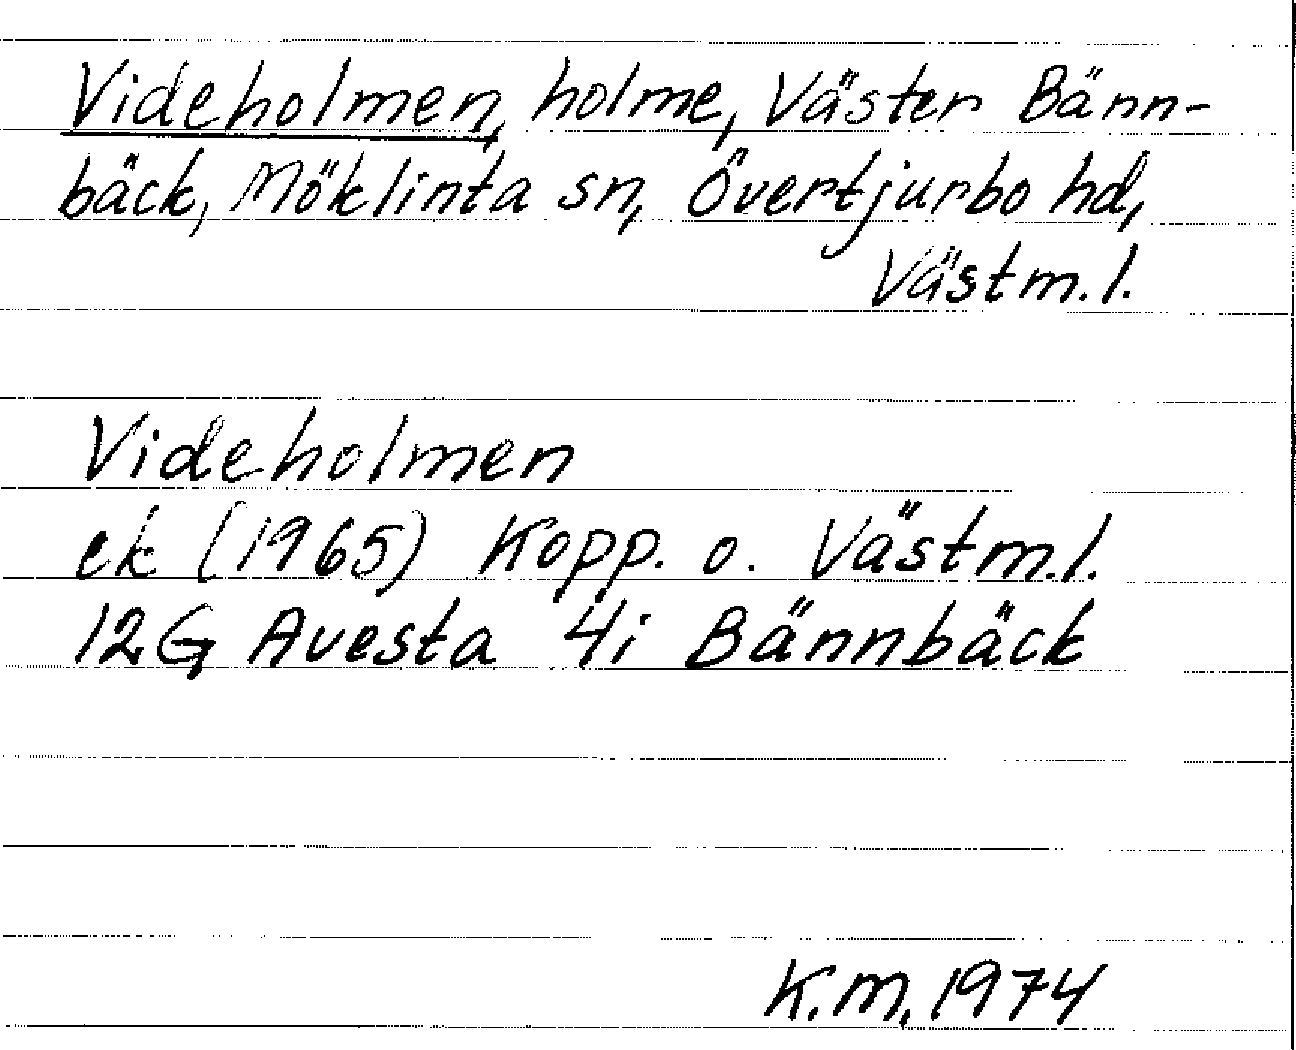 Videholmen, holme, Väster Bänn-
bäck, Möklinta sn, Övertjurbo hd,
Västm.l.
Videholmen
ek (1965) Kopp. o. Västm.l.
12G Avesta 4i Bännbäck
K.M. 1974